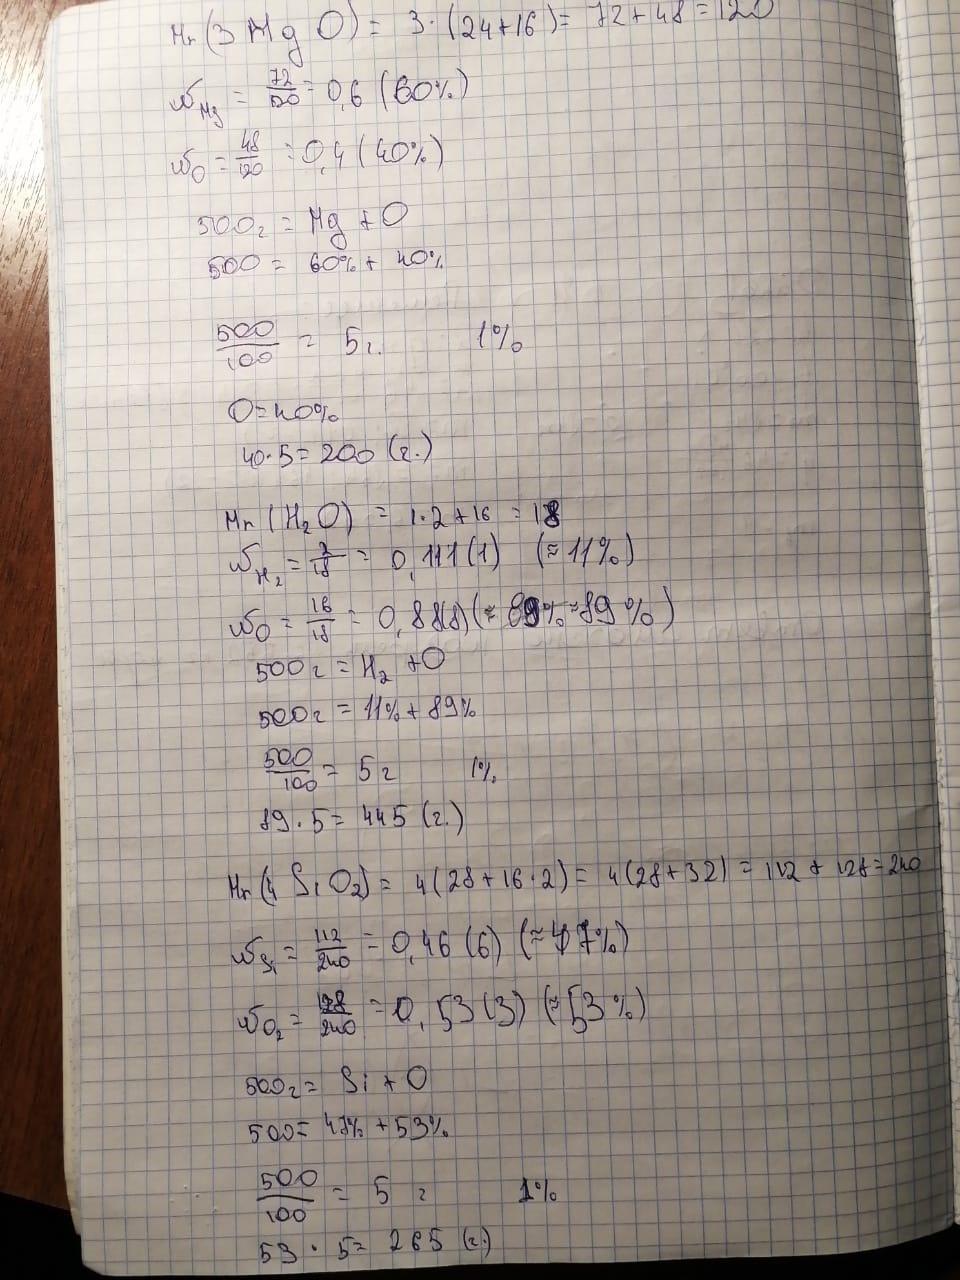 Mr (3 MgO) = 3·(24+16)= 72+48=120
wMg = 72/120 = 0,6 (60%)
wO = 48/120 = 0,4 (40%)
500г = Mg + O
500 = 60% + 40%
500/100 = 5г. 1%
O=40%
40·5=200 (г.)
Mr (H2O) = 1·2+16 = 18
wH2 = 2/18 = 0,111(1) (≈11%)
wO = 16/18 = 0,88(8) (≈ 89% ≈89%)
500г = H2 + O
500г = 11% + 89%
500/100 = 5г 1%
89·5= 445 (г.)
Mr (4 SiO2) = 4(28+16·2)= 4(28+32) = 112 + 128=240
wSi = 112/240 = 0,46(6) (≈47%)
wO2 = 128/240 = 0,53(3) (≈53%)
500г= Si + O
500= 47% + 53%
500/100 = 5 г 1%
53 · 5= 265 (г.)